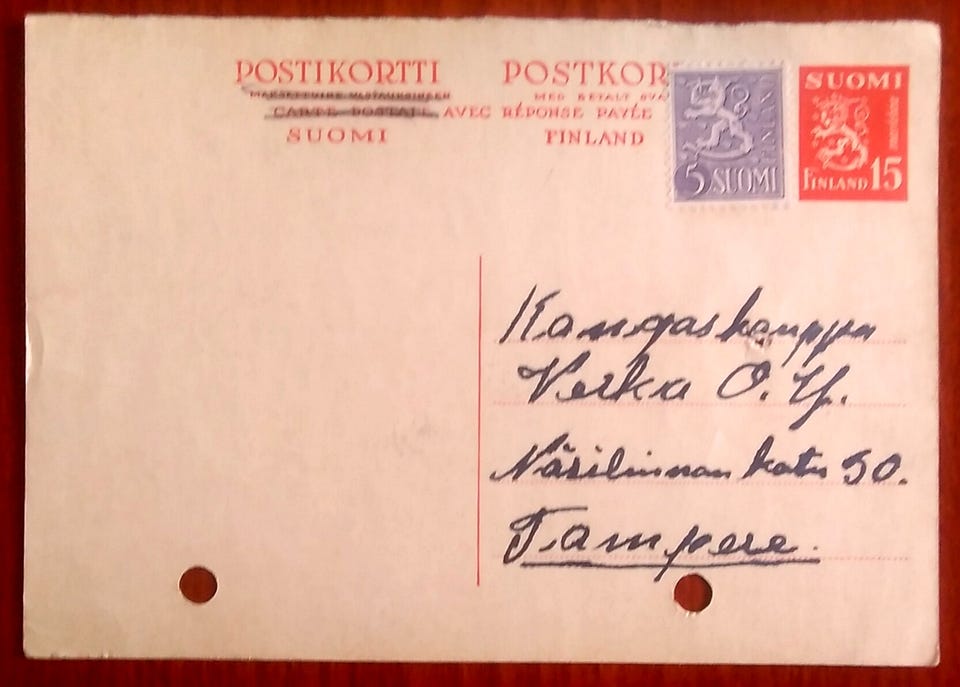 POSTIKORTTI POSTKOR
MAKSETTUINE VASTAUKSINEEN MED BETALT SVA
CARTE POSTALE AVEC RÉPONSE PAYÉE
SUOMI FINLAND
5 SUOMI
FINLAND
SUOMI
FINLAND 15
Kangaskauppa
Verka O.Y.
Näsilinnankatu 30.
Tampere.